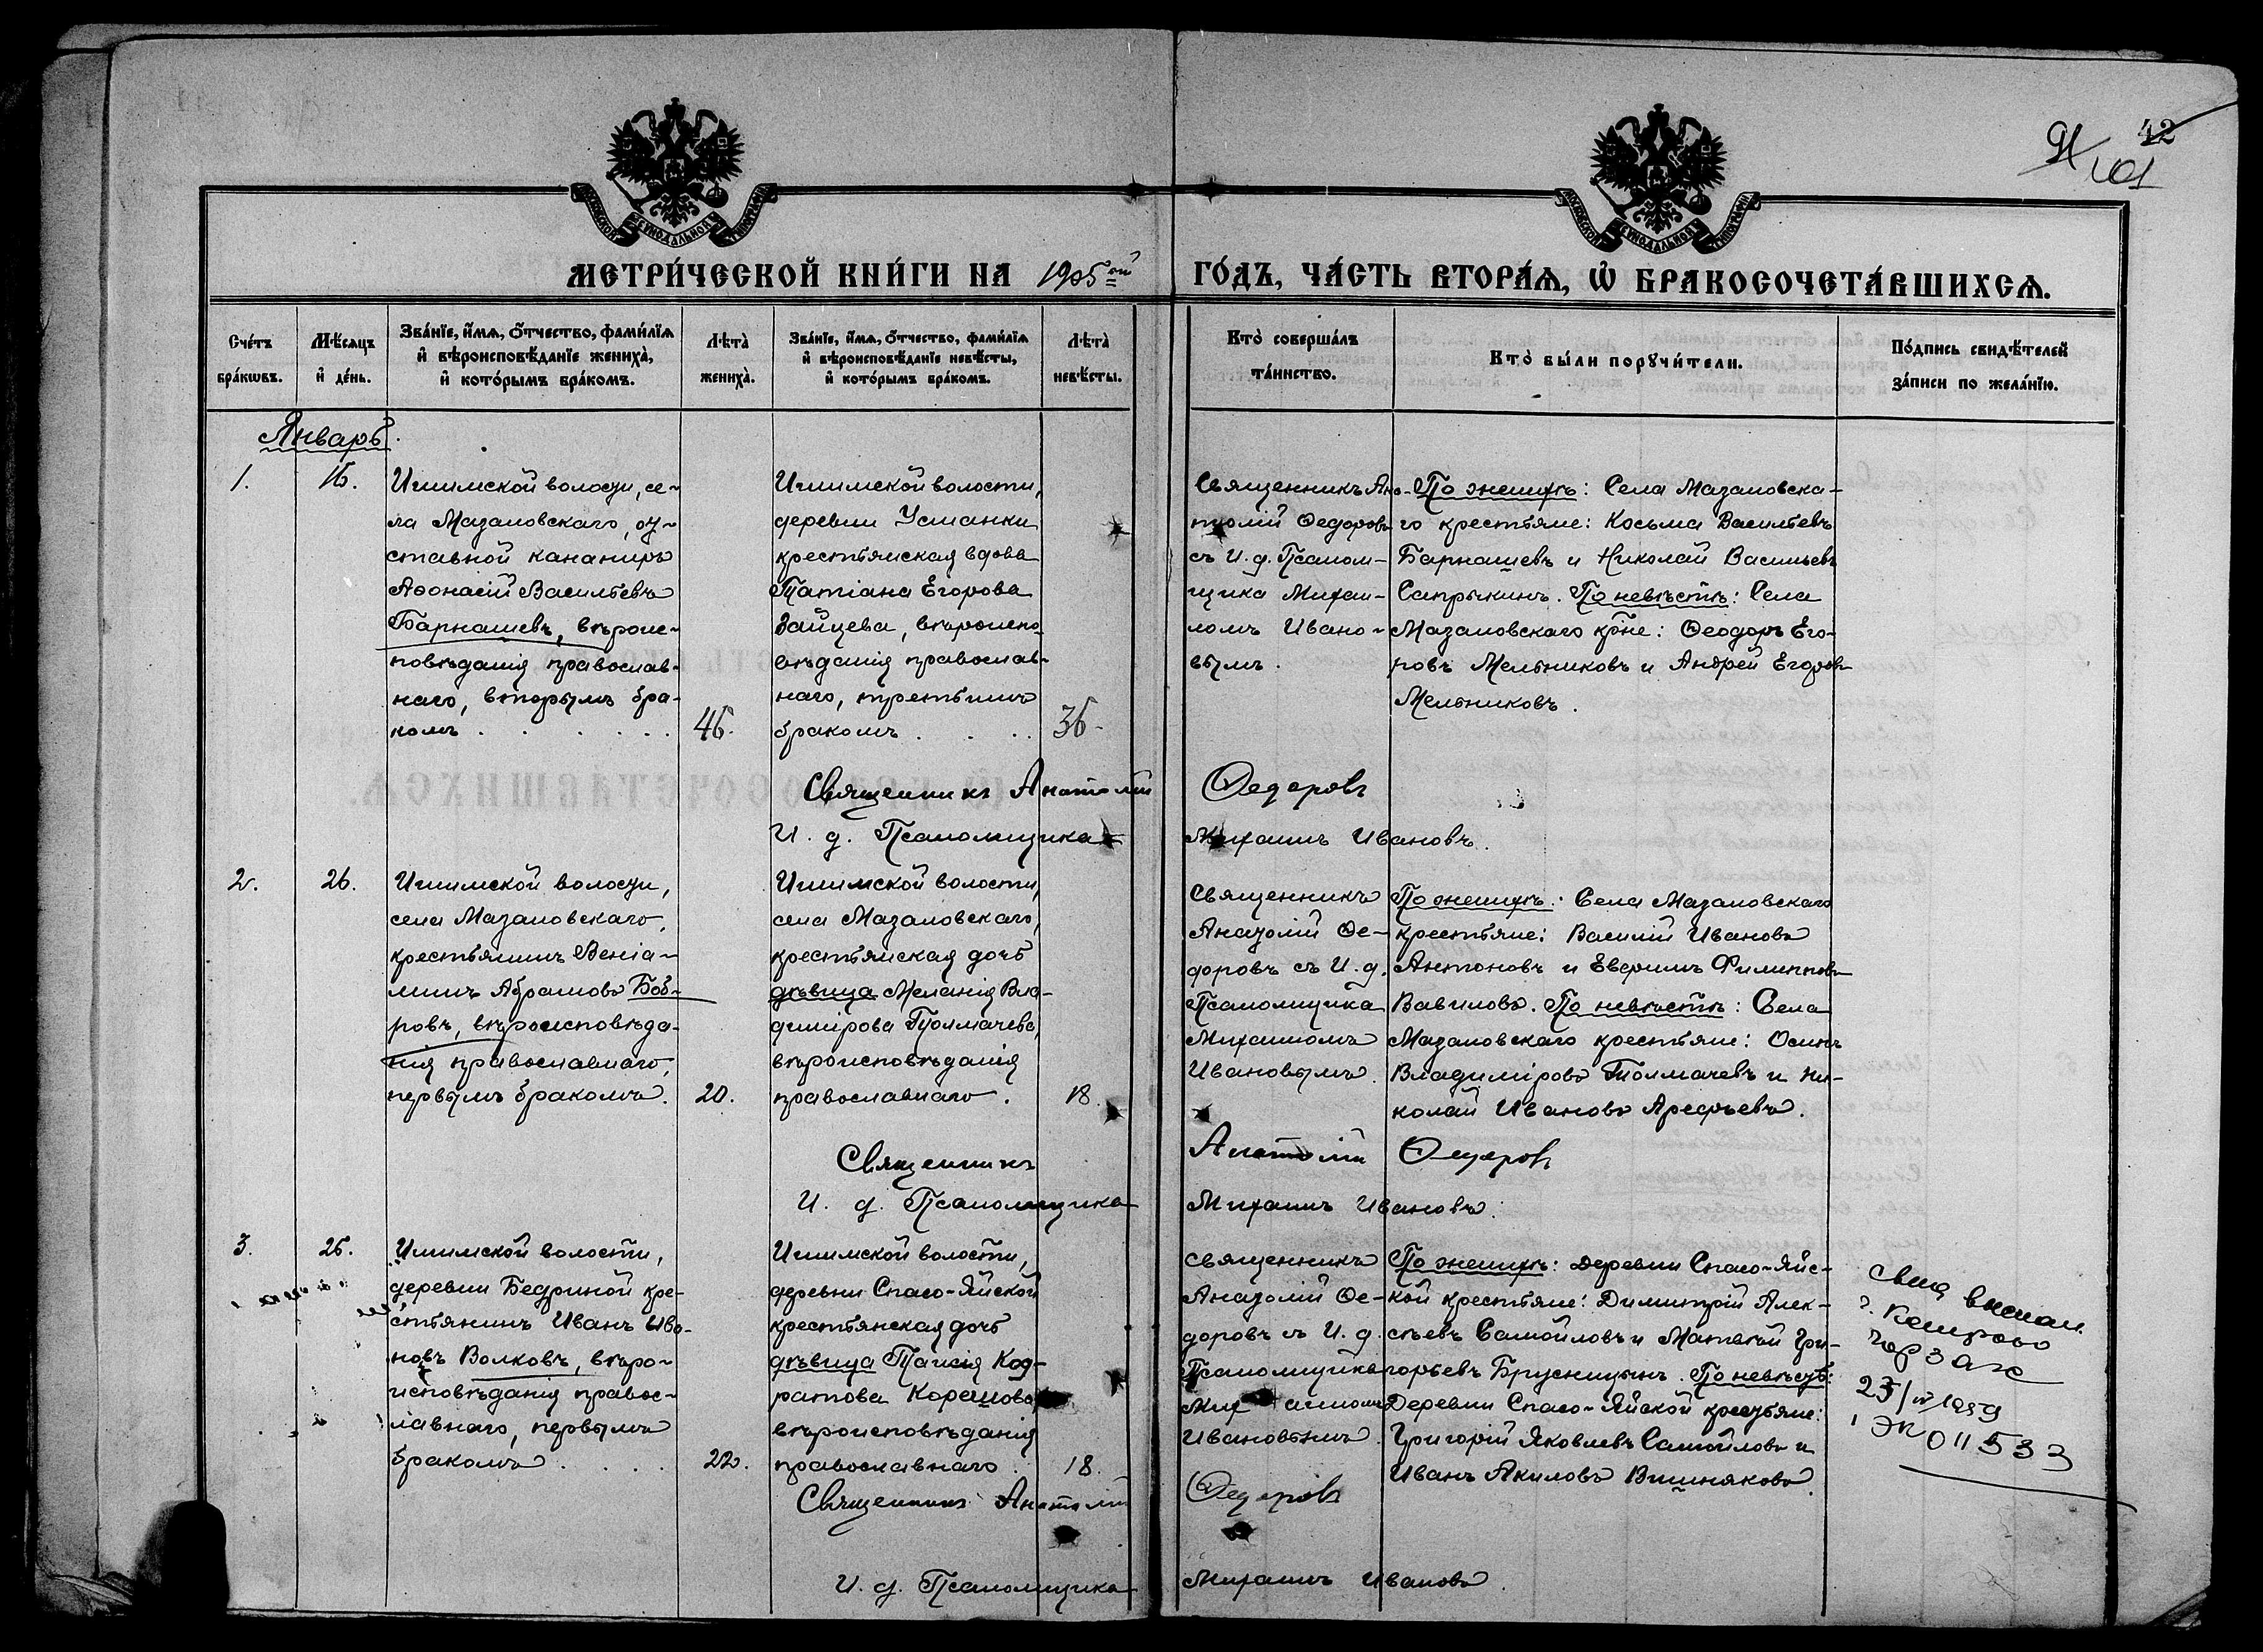 42
91
101
МОСКОВСКОЙ СѴНОДАЛЬНОЙ ТИПОГРАФІИ
МОСКОВСКОЙ СѴНОДАЛЬНОЙ ТИПОГРАФІИ
МЕТРИ́ЧЕСКОЙ КНИ́ГИ НА 1905ый ГО́ДЪ, ЧА́СТЬ ВТОРА́Ѧ, Ѽ БРАКОСОЧЕТА́ВШИХСѦ.
Сче́тъ бра́кѡвъ.
Мѣ́сяцъ и҆ де́нь.
Зва́нїе, и҆́мѧ, ѻ҆́тчество, фами́лїѧ и҆ вѣроисповѣ́данїе жениха̀, и҆ кото́рымъ бра́комъ.
Лѣта̀ жениха̀.
Зва́нїе, и҆́мѧ, ѻ҆́тчество, фами́лїѧ и҆ вѣроисповѣ́данїе невѣ́сты, и҆ кото́рымъ бра́комъ.
Лѣта̀ невѣ́сты.
Кто̀ соверша́лъ та́инство.
Кто̀ бы́ли порꙋчи́тели.
По́дпись свидѣ́телей за́писи по жела́нїю.
Январь.
1.
16.
Ишимской волости, се-
ла Мазаловскаго, от-
ставной кананиръ
Аѳонасій Васильевъ
Барнашевъ, вѣроис-
повѣданія православ-
наго, вторымъ бра-
комъ . . . . . .
46.
Ишимской волости,
деревни Усманки
крестьянская вдова
Татіана Егорова
Зайцева, вѣроиспо-
вѣданія православ-
наго, третьимъ
бракомъ . . . .
36.
Священникъ Ана-
толій Ѳедоровъ
съ И. д. Псалом-
щика Михаи-
ломъ Ивано-
вымъ.
По женихѣ: Села Мазаловска-
го крестьяне: Косьма Васильевъ
Барнашевъ и Николай Васильевъ
Сапрыкинъ. По невѣстѣ: Села
Мазаловскаго кр̃не: Ѳеодоръ Его-
ровъ Мельниковъ и Андрей Егоровъ
Мельниковъ.
Священникъ Анатолій Ѳедоровъ
И. д. Псаломщика Михаилъ Ивановъ.
2.
26.
Ишимской волости,
села Мазаловскаго,
крестьянинъ Веніа-
минъ Абрамовъ Боб-
ровъ, вѣроисповѣда-
нія православнаго,
первымъ бракомъ.
20.
Ишимской волости,
села Мазаловскаго,
крестьянская дочь
дѣвица Меланія Вла-
димірова Толмачева,
вѣроисповѣданія
православнаго.
18.
Священникъ
Анатолій Ѳе-
доровъ съ И. д.
Псаломщика
Михаиломъ
Ивановымъ.
По женихѣ: Села Мазаловскаго
крестьяне: Василій Ивановъ
Антоновъ и Евфимъ Филипповъ
Вавиловъ. По невѣстѣ: Села
Мазаловскаго крестьяне: Осипъ
Владиміровъ Толмачевъ и Ни-
колай Ивановъ Арефьевъ.
Священникъ Анатолій Ѳедоровъ
И. д. Псаломщика Михаилъ Ивановъ.
3.
26.
Ишимской волости,
деревни Бедриной кре-
стьянинъ Иванъ Ива-
новъ Волковъ, вѣро-
исповѣданія правос-
лавнаго, первымъ
бракомъ . . . .
22.
Ишимской волости,
деревни Спасо-Яйской
крестьянская дочь
дѣвица Таисія Код-
ратова Корешова,
вѣроисповѣданія
православнаго.
18.
Священникъ
Анатолій Ѳе-
доровъ съ И. д.
Псаломщика
Михаиломъ
Ивановымъ.
По женихѣ: Деревни Спасо-Яйс-
кой крестьяне: Димитрій Алек-
сѣевъ Самойловъ и Матвѣй Гри-
горьевъ Брусницынъ. По невѣстѣ:
Деревни Спасо-Яйской крестьяне:
Григорій Яковлевъ Самойловъ и
Иванъ Акиловъ Вишняковъ.
Свид выслан.
г. Кемерово
Гор загс
1 ЭК 011533
Священникъ Анатолій Ѳедоровъ
И. д. Псаломщика Михаилъ Ивановъ.